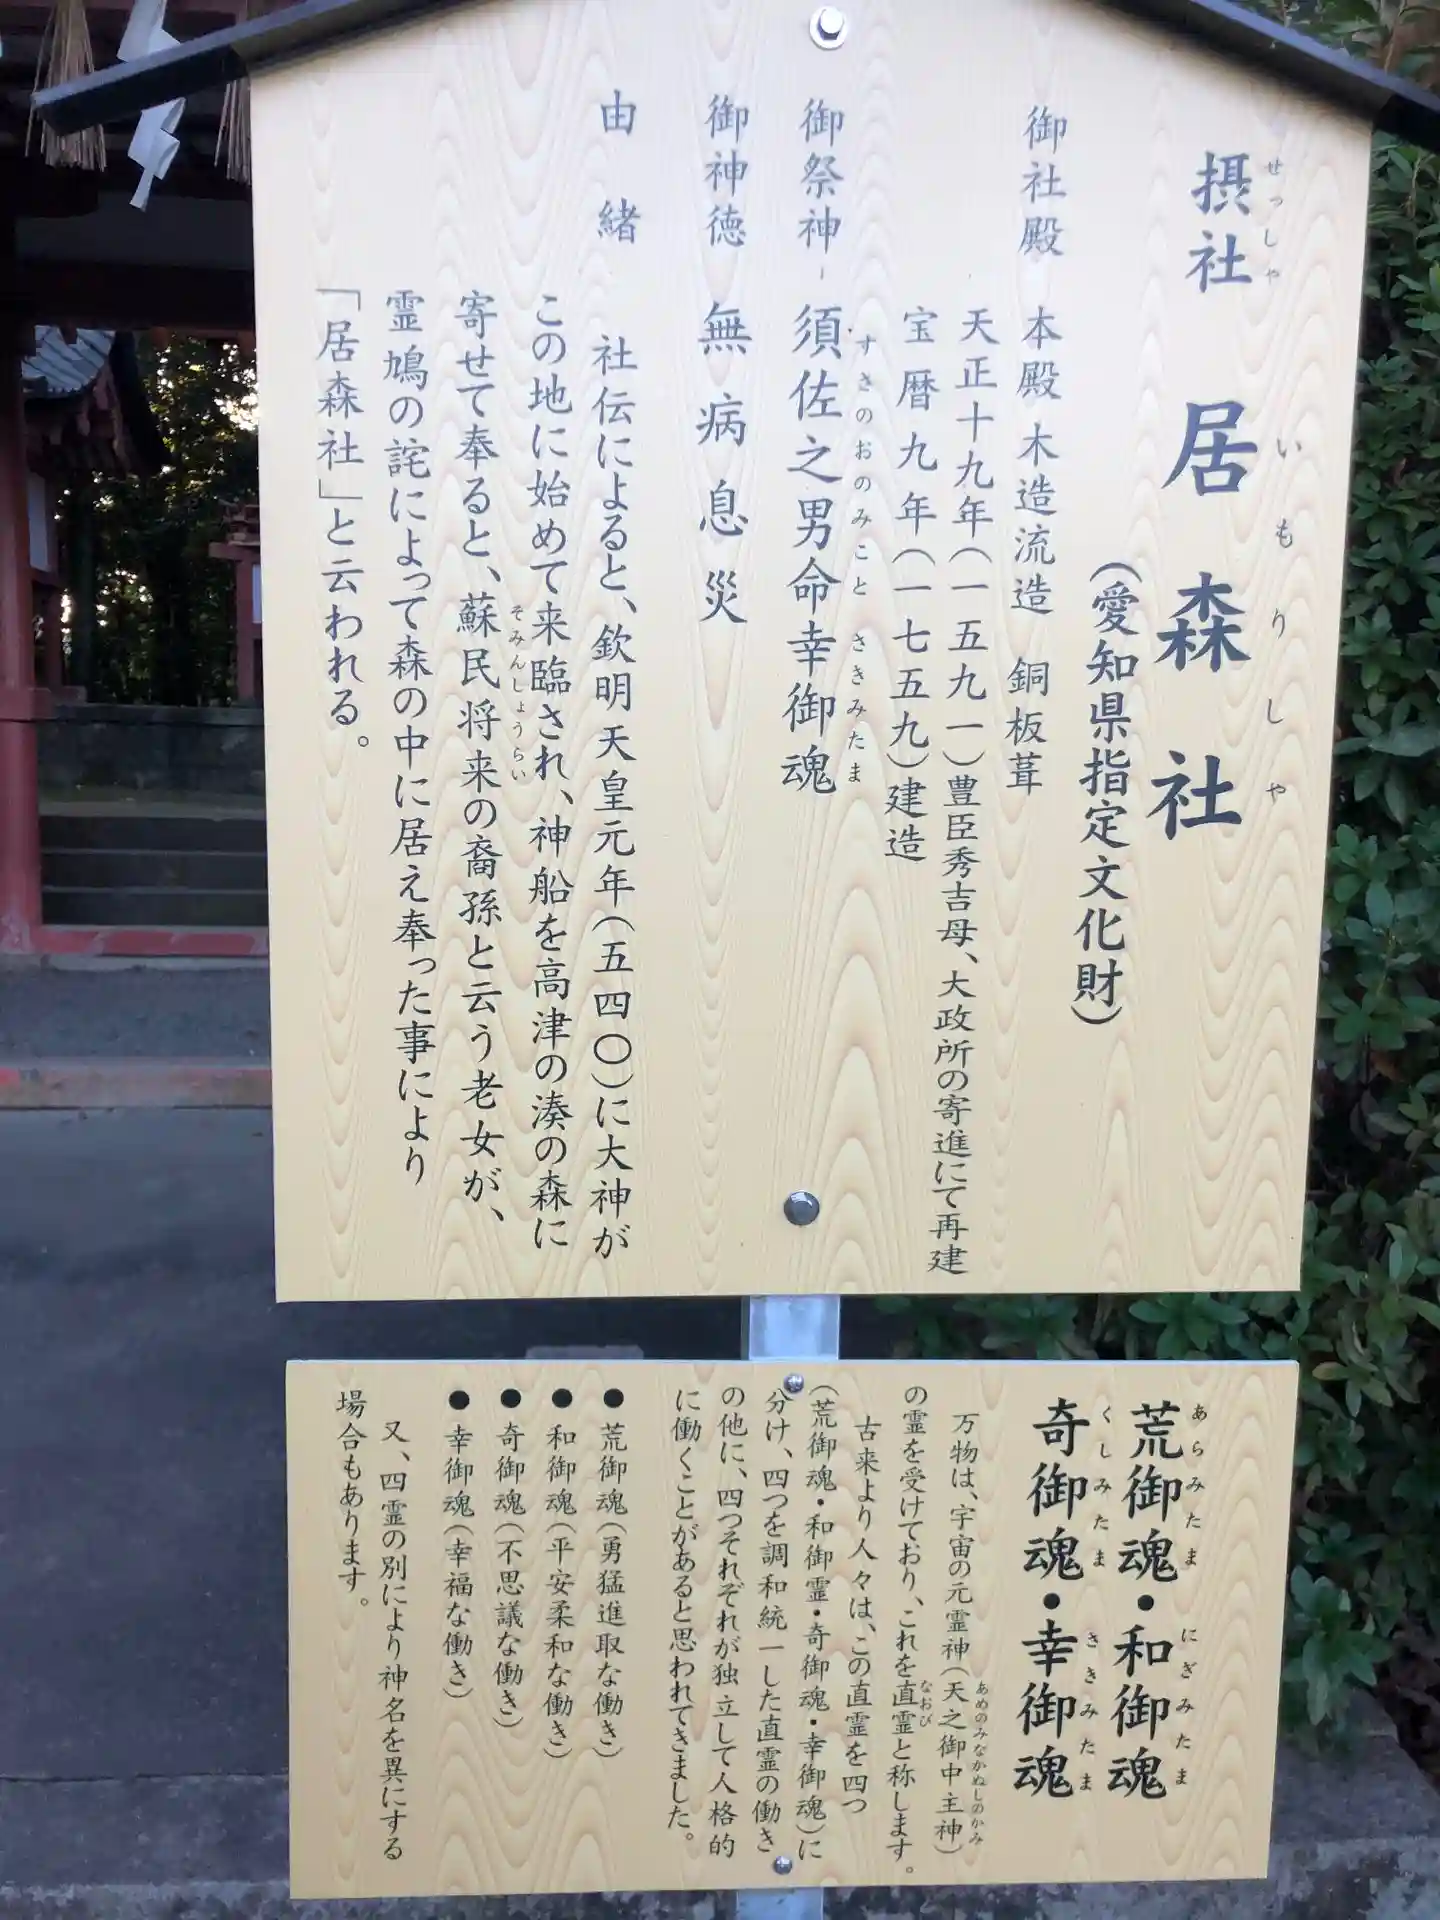 摂社 居森社
せっしゃ いもりしゃ
(愛知県指定文化財)
御社殿 本殿 木造流造 銅板葺
天正十九年(一五九一)豊臣秀吉母、大政所の寄進にて再建
宝暦九年(一七五九)建造
御祭神 須佐之男命幸御魂
すさのおのみこと さきみたま
御神徳 無病息災
由緒 社伝によると、欽明天皇元年(五四〇)に大神が
この地に始めて来臨され、神船を高津の湊の森に
寄せて奉ると、蘇民将来の裔孫と云う老女が、
そみんしょうらい
霊鳩の詫によって森の中に居え奉った事により
「居森社」と云われる。
荒御魂・和御魂
あらみたま にぎみたま
奇御魂・幸御魂
くしみたま さきみたま
万物は、宇宙の元霊神(天之御中主神)
あめのみなかぬしのかみ
の霊を受けており、これを直霊と称します。
なおび
古来より人々は、この直霊を四つ
(荒御魂・和御霊・奇御魂・幸御魂)に
分け、四つを調和統一した直霊の働き
の他に、四つそれぞれが独立して人格的
に働くことがあると思われてきました。
●荒御魂(勇猛進取な働き)
●和御魂(平安柔和な働き)
●奇御魂(不思議な働き)
●幸御魂(幸福な働き)
又、四霊の別により神名を異にする
場合もあります。